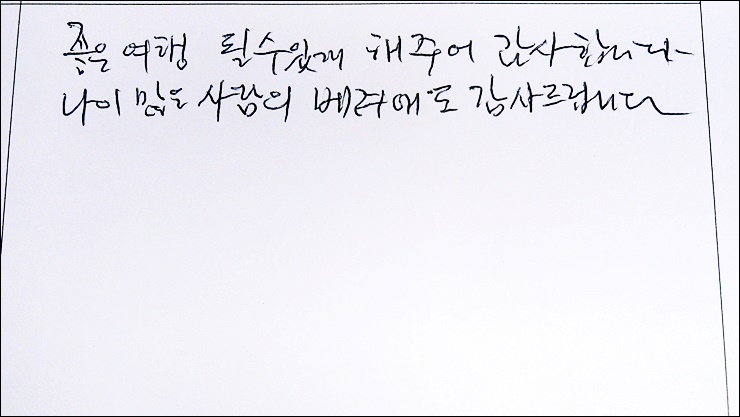 좋은 여행 될수있게 해주어 감사합니다
나이 많은 사람의 배려에도 감사드립니다